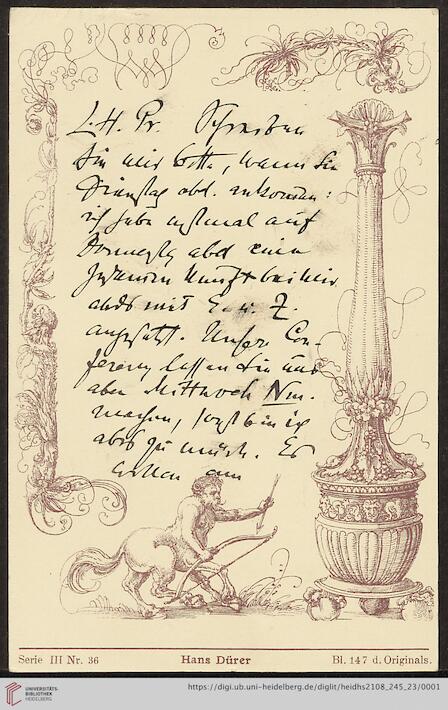 L. H. Pr. Schreiben
Sie mir bitte, wann Sie
Dienstag abd. ankommen:
ich habe erstmal auf
abd eine
bei mir
abds mit E. u. Z.
angesetzt. Unsere Con-
ferenz lassen Sie uns
aber Mittwoch Nm.
machen, sonst bin ich
abds zu müde. Es
wollen am
Serie III Nr. 36
Hans Dürer
Bl. 147 d. Originals.
UNIVERSITÄTS-
BIBLIOTHEK
HEIDELBERG
https://digi.ub.uni-heidelberg.de/diglit/heidhs2108_245_23/0001